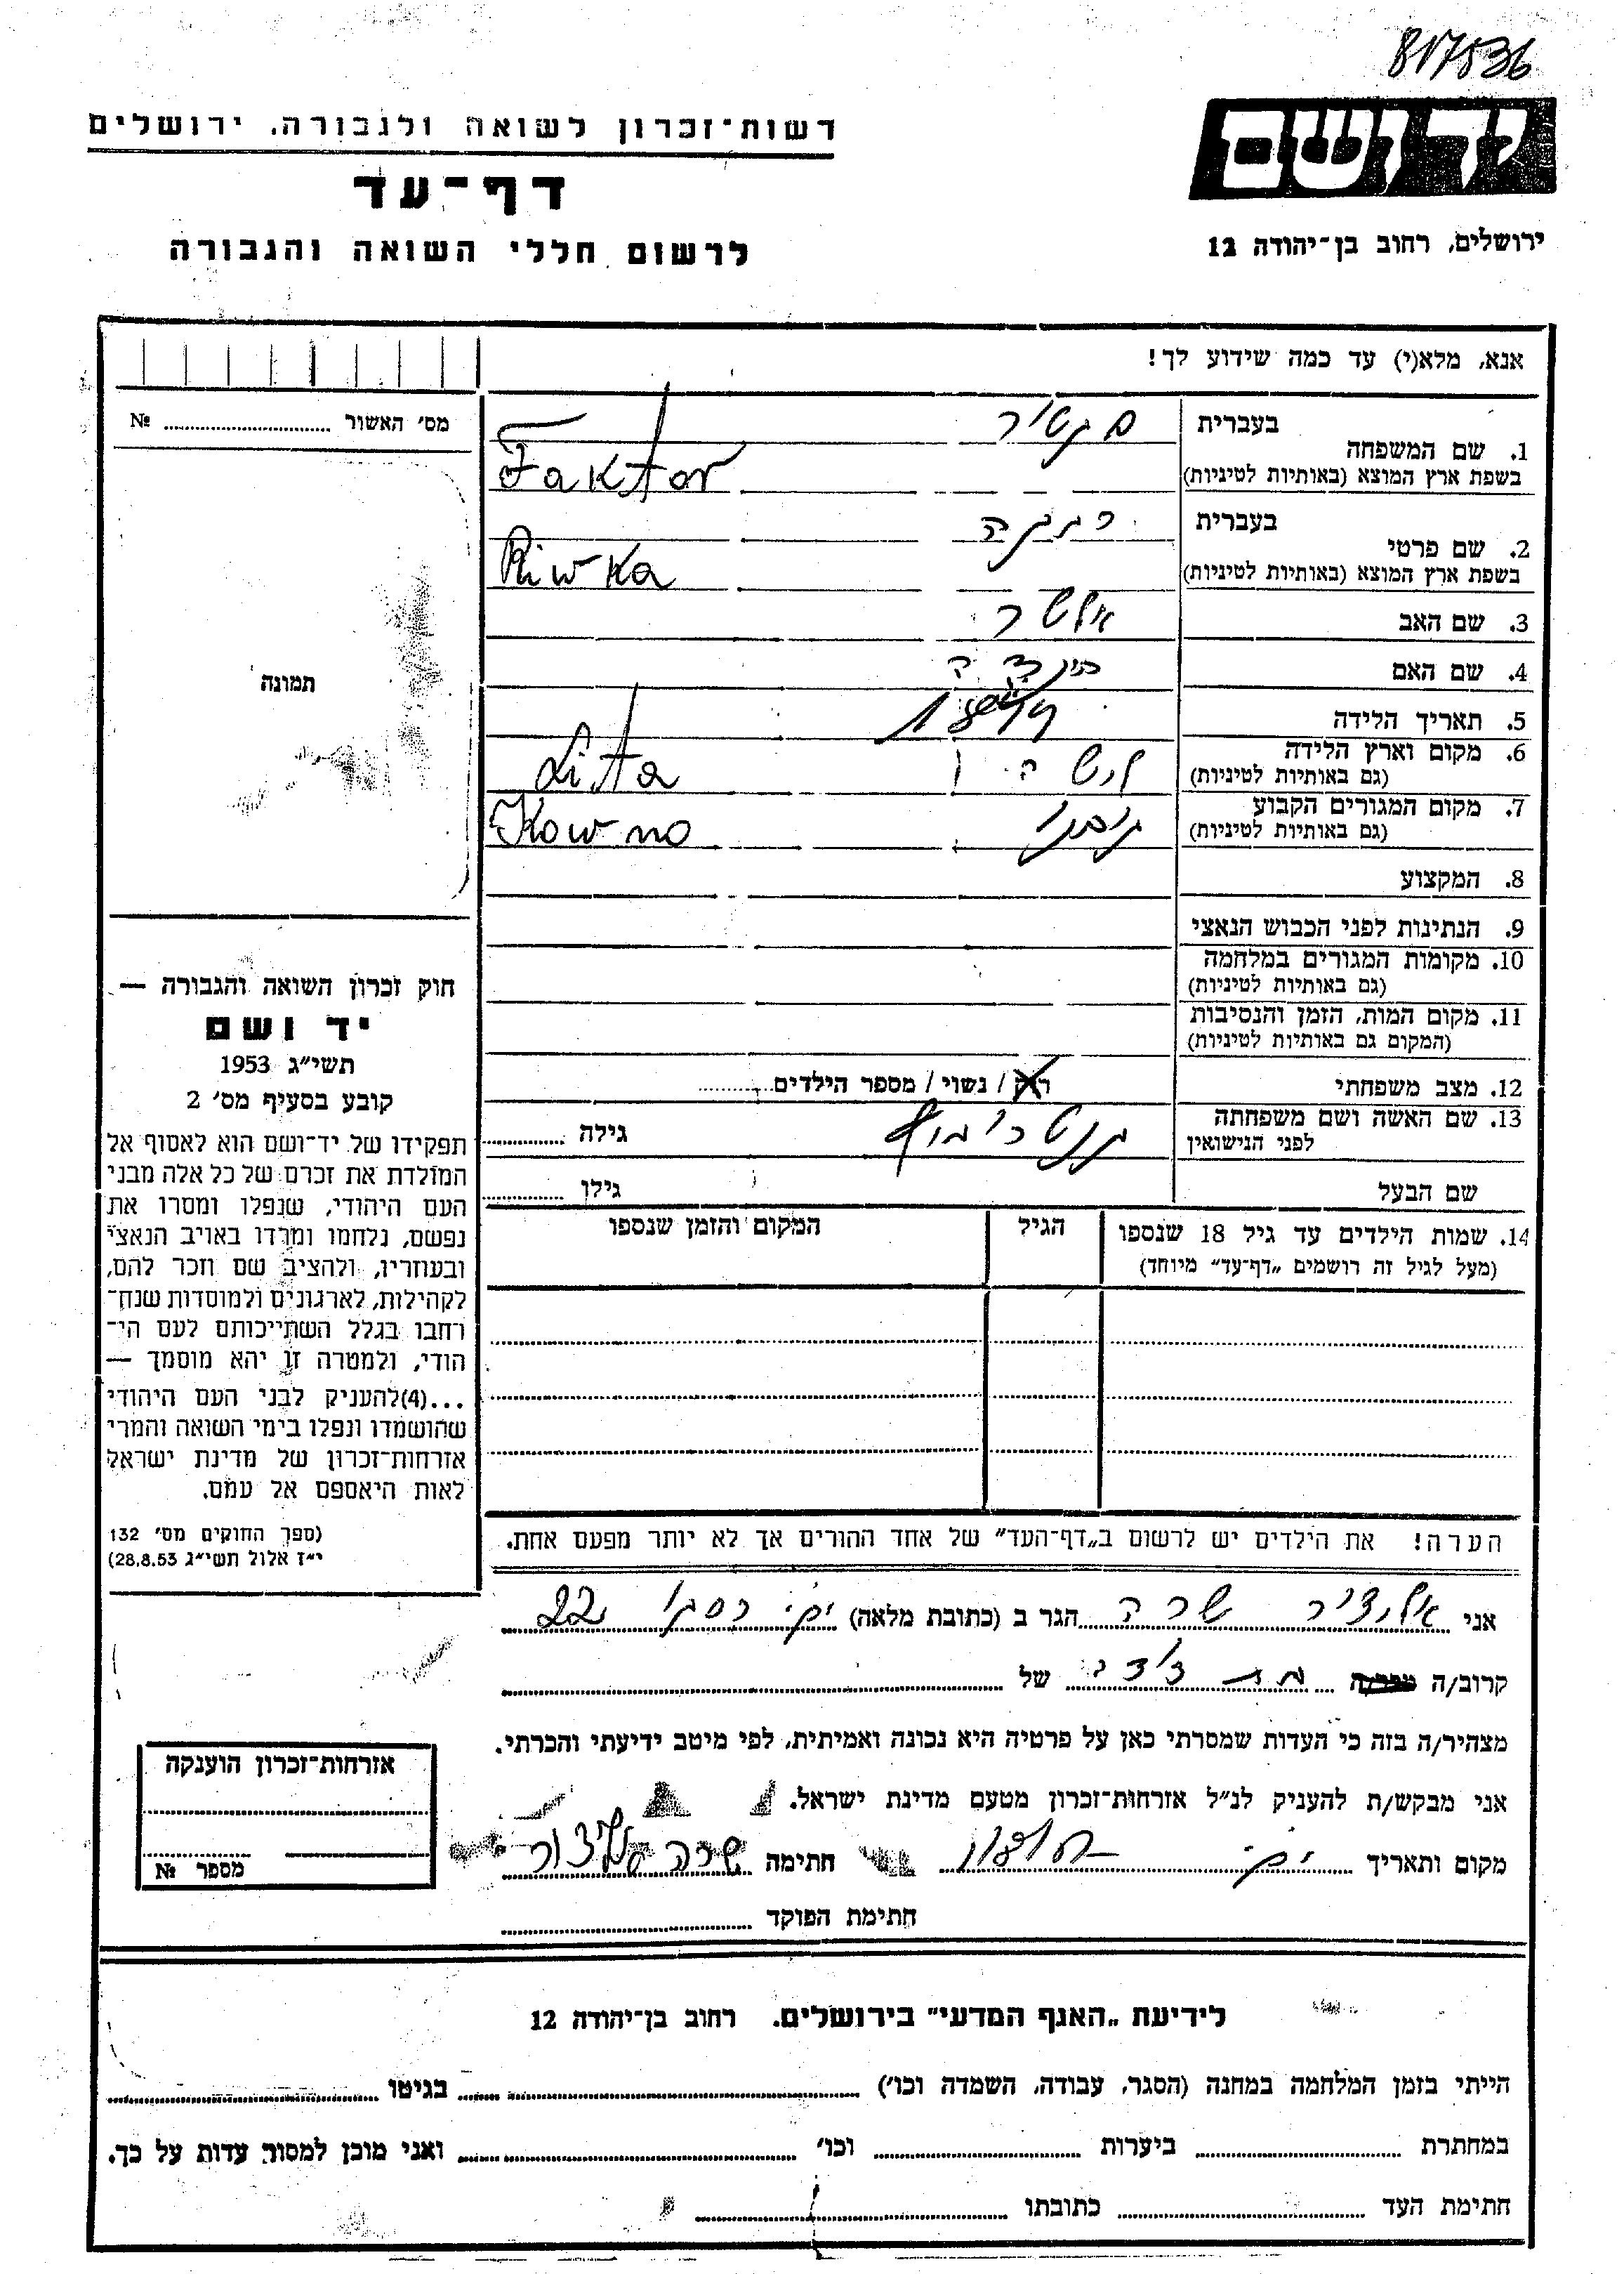 817536
יד ושם
רשות־זכרון לשואה ולגבורה, ירושלים
דף־עד
לרשום חללי השואה והגבורה
ירושלים, רחוב בן־יהודה 12
אנא, מלא(י) עד כמה שידוע לך!
מס׳ האשור № 
תמונה
1. שם המשפחה
בעברית פקטור
בשפת ארץ המוצא (באותיות לטיניות) Faktor
2. שם פרטי
בעברית רבקה
בשפת ארץ המוצא (באותיות לטיניות) Riwka
3. שם האב אלטר
4. שם האם
5. תאריך הלידה
6. מקום וארץ הלידה
(גם באותיות לטיניות) ליטה Lita
7. מקום המגורים הקבוע
(גם באותיות לטיניות) קובנו Kowno
8. המקצוע
9. הנתינות לפני הכבוש הנאצי
10. מקומות המגורים במלחמה
(גם באותיות לטיניות)
11. מקום המות, הזמן והנסיבות
(המקום גם באותיות לטיניות)
12. מצב משפחתי רוק / נשוי / מספר הילדים
13. שם האשה ושם משפחתה
לפני הנישואין גילה
שם הבעל גילו
14. שמות הילדים עד גיל 18 שנספו הגיל המקום והזמן שנספו
(מעל לגיל זה רושמים „דף־עד״ מיוחד)
חוק זכרון השואה והגבורה —
יד ושם
תשי״ג 1953
קובע בסעיף מס׳ 2
תפקידו של יד־ושם הוא לאסוף אל
המולדת את זכרם של כל אלה מבני
העם היהודי, שנפלו ומסרו את
נפשם, נלחמו ומרדו באויב הנאצי
ובעוזריו, ולהציב שם וזכר להם,
לקהילות, לארגונים ולמוסדות שנח־
רחבו בגלל השתייכותם לעם הי־
הודי, ולמטרה זו יהא מוסמך —
...(4)להעניק לבני העם היהודי
שהושמדו ונפלו בימי השואה והמרי
אזרחות־זכרון של מדינת ישראל
לאות היאספם אל עמם.
(ספר החוקים מס׳ 132
י״ז אלול תשי״ג 28.8.53)
הערה! את הילדים יש לרשום ב„דף־העד״ של אחד ההורים אך לא יותר מפעם אחת.
אני שרה הגר ב (כתובת מלאה) 22
קרוב/ה בת דודה של
מצהיר/ה בזה כי העדות שמסרתי כאן על פרטיה היא נכונה ואמיתית, לפי מיטב ידיעתי והכרתי.
אני מבקש/ת להעניק לנ״ל אזרחות־זכרון מטעם מדינת ישראל.
מקום ותאריך חתימה שרה
חתימת הפוקד
אזרחות־זכרון הוענקה
מספר №
לידיעת „האגף המדעי״ בירושלים. רחוב בן־יהודה 12
הייתי בזמן המלחמה במחנה (הסגר, עבודה, השמדה וכו׳) בגיטו
במחתרת ביערות וכו׳ ואני מוכן למסור עדות על כך.
חתימת העד כתובתו